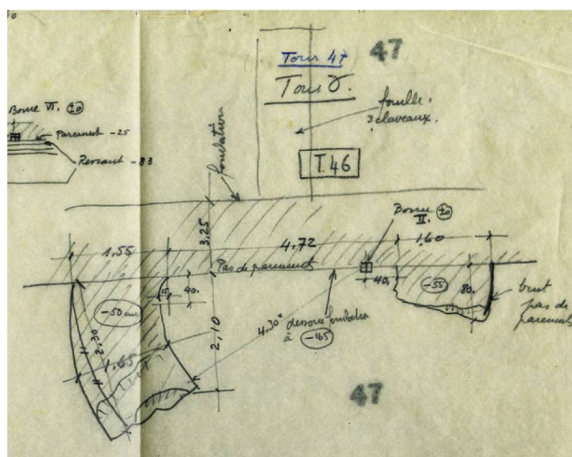 Tour 47
47
Tour 8.
fouille.
3 claveaux.
T.46
Borne VI. ±0
Parement -25
Ressaut -83
fondation
3.25
1.55
4.72
Borne
II. ±0
1.60
Pas de parement
40.
15
40.
-50
-55
80.
brut
pas de
parement
2.30
1.65
2,10
4.30
dessous fondation
à -165
47